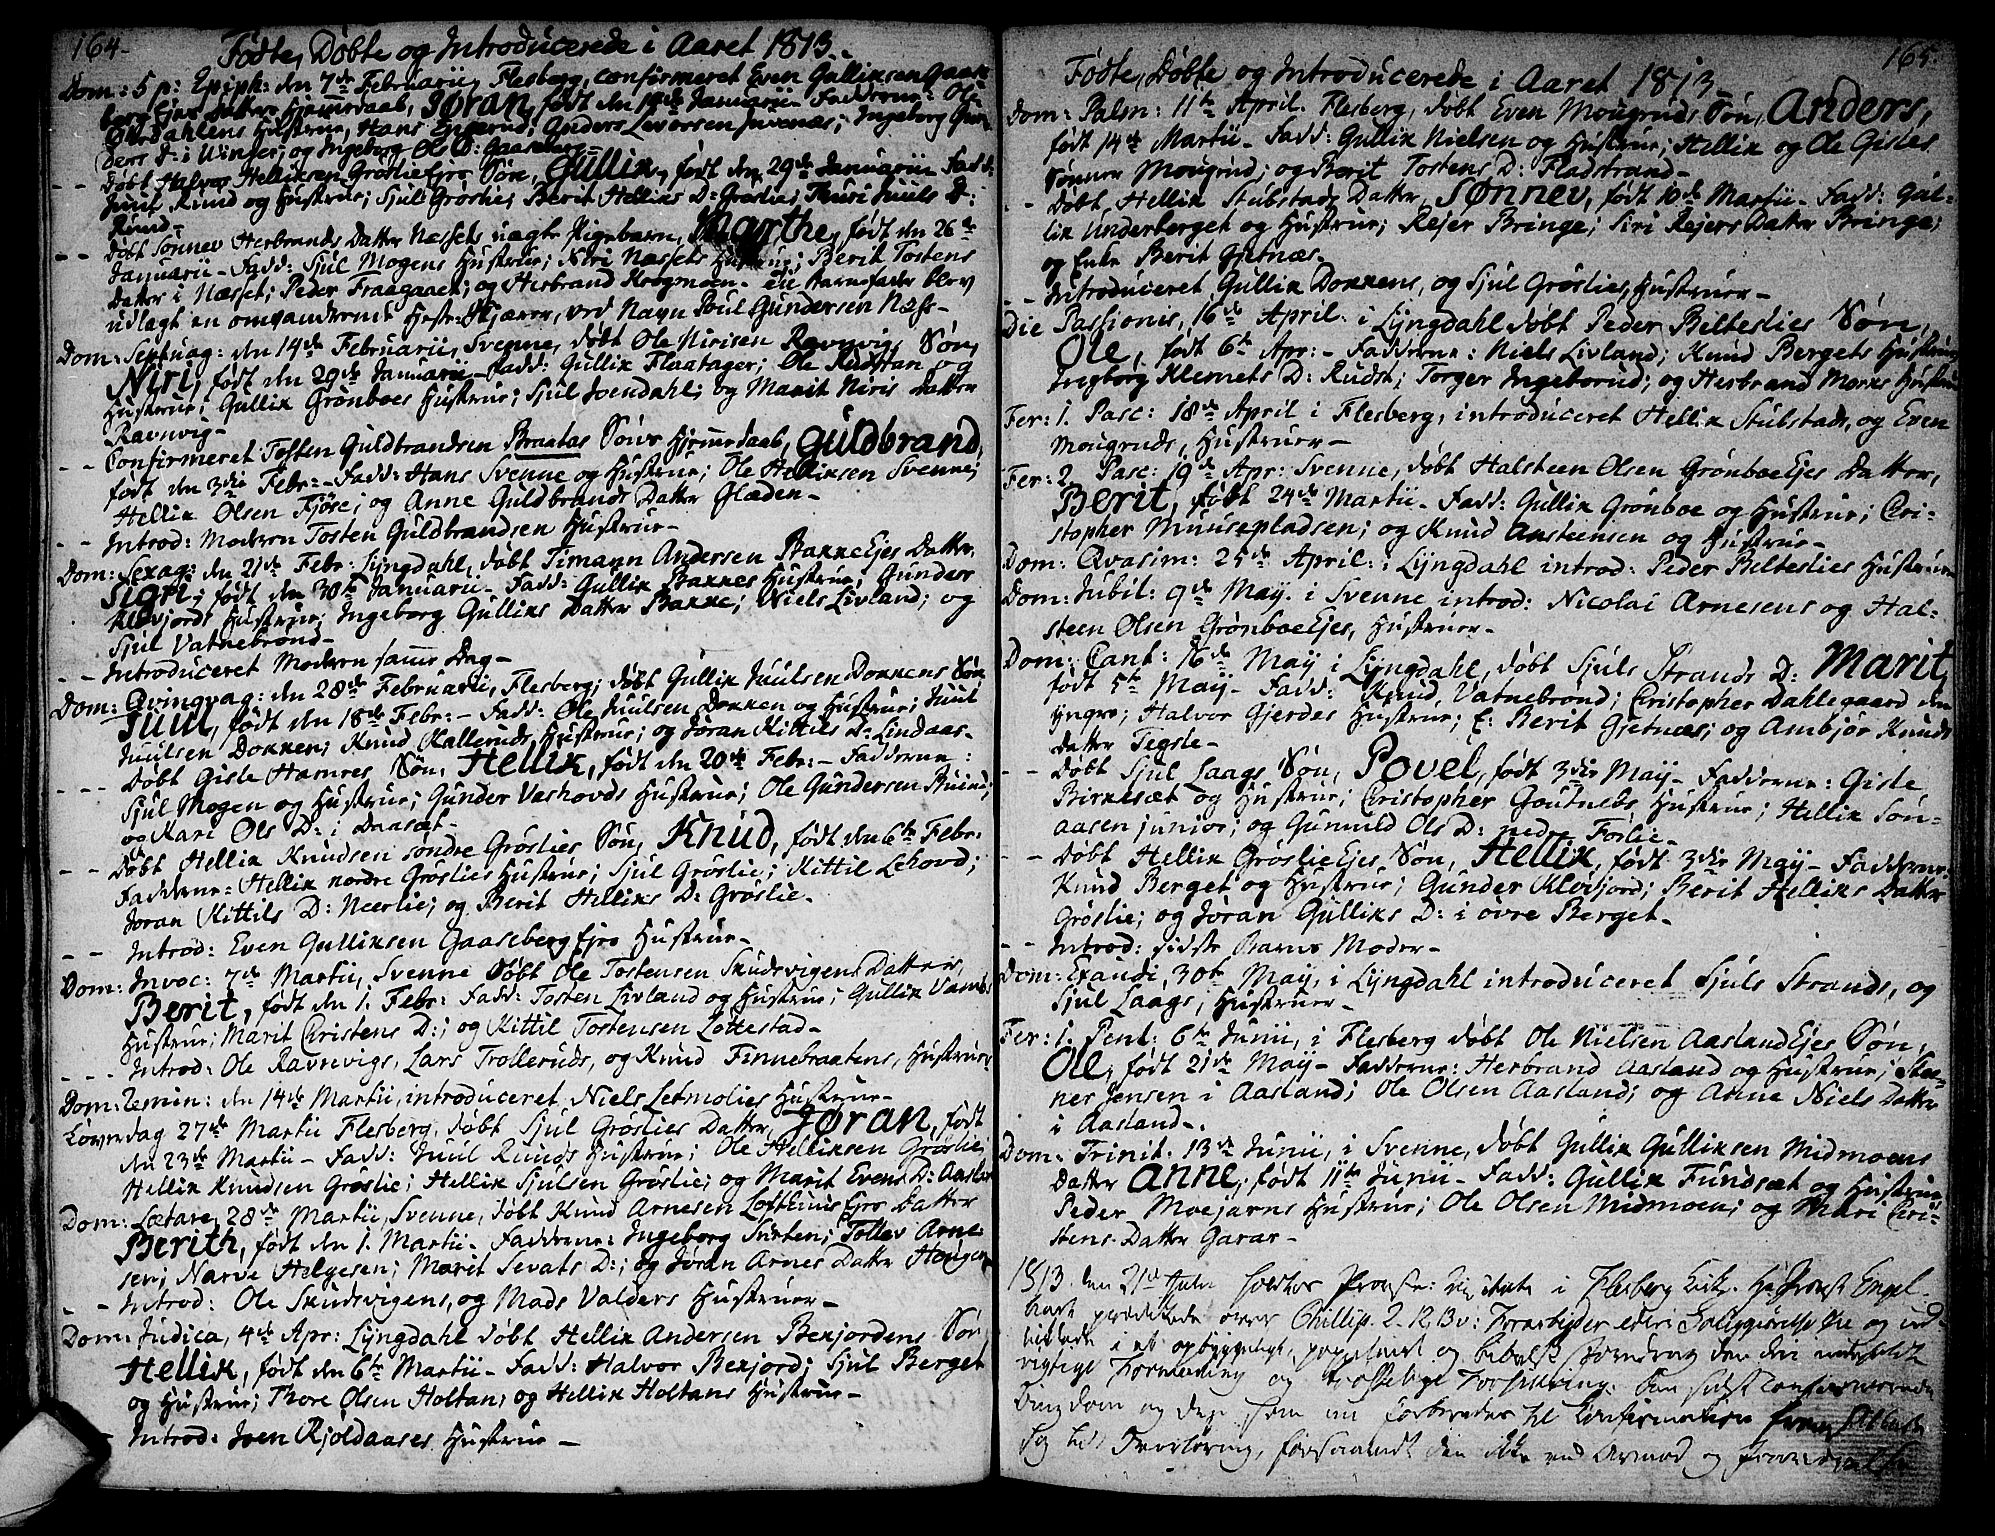 164.
Fødte, Døbte og Introducerede i Aaret 1813.
Dom: 5 p: Epiph: den 7de Februarii, Flesberg, confirmeret Even Gulliksen Gaase-
berg Ejes Datter Hjemmedaab, Jøran, født den Januarii - Fadderne: Ole
Hustrue, Hans Engerud; Anders Levorsen Juvenæs; Ingeborg Gun-
ders D: i Winter; og Ingeborg Ols D: Gaaseberg -
- - Døbt Halvor Helliksen GrøslieEjes Søn, Gullik, født den 29de Januarii - Fadd:
Juul Ruud og Hustrue; Sjul Grøslie; Berit Helliks D: Grøslie; Thuri Juuls D:
Ruud -
- - Døbt Sønnev Herbrands Datter Næssets uægte Pigebarn, Marthe, født den 26de
Januarii - Fadd: Sjul Mogens Hustrue; Niri Næssets Hustrue; Berit Tostens
Datter i Næsset; Peder Fraagaaet; og Herbrand Kragmoen - til Barnefader blev
udlagt en omvandrende Heste-Skjærer, ved Navn Poul Gundersen Næss -
Dom: Septuag: den 14de Februarii, Svenne, døbt Ole Nirisen Ravnvig Søn,
Niri, født den 29de Januarii - Fadd: Gullik Flaatager; Ole Rudstan og
Hustrue; Gullik Grønboes Hustrue; Sjul Joendahl; og Marit Niris Datter
Ravnvig -
- - Confirmeret Tosten Guldbrandsen Braatas Søns Hjemmedaab, Guldbrand,
født den 3die Febr: - Fadd: Hans Svenne og Hustrue; Ole Helliksen Svenne;
Hellik Olsen Fjøse; og Anne Guldbrands Datter Glæden -
- - Introd: Moderen Tosten Guldbrandsen Hustrue -
Dom: Sexag: den 21de Febr: Lyngdahl, døbt Timann Andersen BakkeEjes Datter,
Sigri, født den 30te Januarii - Fadd: Gullik Bakkes Hustrue; Gunder
Kløvjords Hustrue; Ingeborg Gulliks Datter Bakke; Niels Livland; og
Sjul Vatnebrond -
- - Introduceret Moderen samme Dag -
Dom: Qvinqvag: den 28de Februarii, Flesberg; døbt Gullik Juulsen Dokkens Søn,
Juul, født den 18de Febr: - Fadd: Ole Juulsen Dokken og Hustrue; Juul
Juulsen Dokken; Knud Kalleruds Hustrue; og Jøran Kittils D: Lindaas -
- - - Døbt Gisle Hamres Søn, Hellik, født den 20de Febr: - Fadderne:
Sjul Mogen og Hustrue; Gunder Vashovds Hustrue; Ole Gundersen Ruud;
og Kari Ols D: i Daaset -
- - Døbt Hellik Knudsen søndre Grøslies Søn, Knud, født den 6te Febr:
Fadderne: Hellik nordre Grøslies Hustrue; Sjul Grøslie; Kittil Lehovd;
Jøran Kittils D: Neerlie; og Berit Helliks D: Grøslie -
- - Introd: Even Gulliksen GaasebergEjes Hustrue -
Dom: Invoc: 7de Martii, Svenne døbt Ole Tostensen Skudsvigens Datter,
Berit, født den 1. Febr: Fadd: Tosten Livland og Hustrue; Gullik
Hustrue; Marit Christens D:; og Kittil Tostensen Løttestad -
- - - Introd: Ole Ravnevigs, Lars Trolleruds, og Knud Finnebraatens, Hustruer
Dom: Remin: den 14de Martii, introduceret Niels Letmolies Hustrue -
Løverdag 27de Martii Flesberg, døbt Sjul Grøslies Datter, Jøran, født
den 23de Martii - Fadd: Juul Ruuds Hustrue; Ole Helliksen Grøslie;
Hellik Knudsen Grøslie; Hellik Sjulsen Grøslie; og Marit Evens D: Aaslie
Dom: Lætare, 28de Martii, Svenne, døbt Knud Arnesen LofthuusEjes Datter
Berith, født den 1. Martii - Fadderne: Ingeborg Surten; Tollev Arne-
sen; Narve Helgesen; Marit Sevats D:; og Jøran Arnes Datter Hougen
- - Introd: Ole Skudsvigens, og Mads Valders Hustruer -
Dom: Judica, 4de Apr: Lyngdahl døbt Hellik Andersen Bekjordens Søn
Hellik, født den 6te Martii - Fadd: Halvor Bekjord; Sjul Berget
og Hustrue; Thore Olsen Holtan; og Hellik Holtans Hustrue -
- Introd: Joen Kjoldaases Hustrue -
165.
Fødte, Døbte og Introducerede i Aaret 1813 -
Dom: Palm: 11te April. Flesberg, døbt Even Mougruds Søn, Anders,
født 14de Martii - Fadd: Gullik Nielsen og Hustrue; Hellik og Ole Gisles
Sønner Mougrud; og Berit Tostens D: Fladstrand -
- - Døbt Hellik Stubstads Datter, Sønnev, født 10de Martii - Fadd: Gul-
lik Underberget og Hustrue; Rejer Bringe; Siri Rejers Datter Bringe;
og Enke Berit Gjetnæs -
- - Introduceret Gullik Dokkens, og Sjul Grøslies, Hustruer -
Die Passionis, 16de April. i Lyngdahl døbt Peder Belteslies Søn,
Ole, født 6te Apr: - Fadderne: Niels Livland; Knud Bergets Hustrue
Ingborg Klemets D: Ruds; Torger Ingeborud; og Herbrand Morks Hustrue
Fer: 1. Pasc: 18de April i Flesberg, introduceret Hellik Stubstads, og Even
Mougruds, Hustruer -
Fer: 2. Pasc: 19de Apr: Svenne, døbt Halsteen Olsen GrønboeEjes Datter,
Berit, født 24de Martii - Fadd: Gullik Grønboe og Hustrue; Cri-
stopher Muusepladsen; og Knud Ansteensen og Hustrue -
Dom: Qvasim: 25de April: i Lyngdahl introd: Peder Belteslies Hustrue
Dom: Jubil: 9de May. i Svenne introd: Nicolai Arnesens og Hal-
steen Olsen GrønboeEjes, Hustruer -
Dom: Cant: 16de Maÿ i Lyngdahl, døbt Sjuls Strands D: Marit,
født 5te Maÿ - Fadd: Knud Vatnebrond; Christopher Dahlegaard den
yngre; Halvor Gjerdes Hustrue; E: Berit Gjetnæs; og Ambjør Knuds
Datter Tegsle -
- - Døbt Sjul Laags Søn, Povel, født 3die Maÿ - Fadderne: Gisle
Birkesæt og Hustrue; Christopher Goutnebs Hustrue; Hellik Søn-
aasen junior; og Gunuld Ols D: nedre Foslie -
- - Døbt Hellik GrøslieEjes Søn, Hellik, født 3die Maÿ - Fadderne:
Knud Berget og Hustrue; Gunder Kløvfjord; Berit Helliks Datter
Grøslie; og Jøran Gulliks D: i øvre Berget -
- - Introd: sidste Barns Moder -
Dom: Exaudi, 30te Maÿ, i Lyngdahl introduceret Sjuls Strands, og
Sjul Laags, Hustruer -
Fer: 1. Pent: 6te Junii, i Flesberg døbt Ole Nielsen AaslandEjes Søn,
Ole, født 21de Maÿ - Fadderne: Herbrand Aasland og Hustrue; Stee-
ner Jensen i Aasland; Ole Olsen Aasland; og Anne Niels Datter
i Aasland -
Dom: Trinit: 13de Junii, i Svenne, døbt Gullik Gulliksen Midmoens
Datter Anne, født 11te Junii - Fadd: Gullik Fundsæt og Hustrue
Peder Moejarns Hustrue; Ole Olsen Midmoen; og Mari Cri-
stens Datter Garaas -
1813 den 21de holdtes i Flesberg Kirke. Hr Provst Engel-
hart prædikede over Phillip. 2. 12, 13 v: Forarbejder eders Saliggjørelse &c og
i et opbyggeligt, og bibelsk Foredrag
vigtige Formaning og
Ungdom og som nu forberedes til Confirmation
og